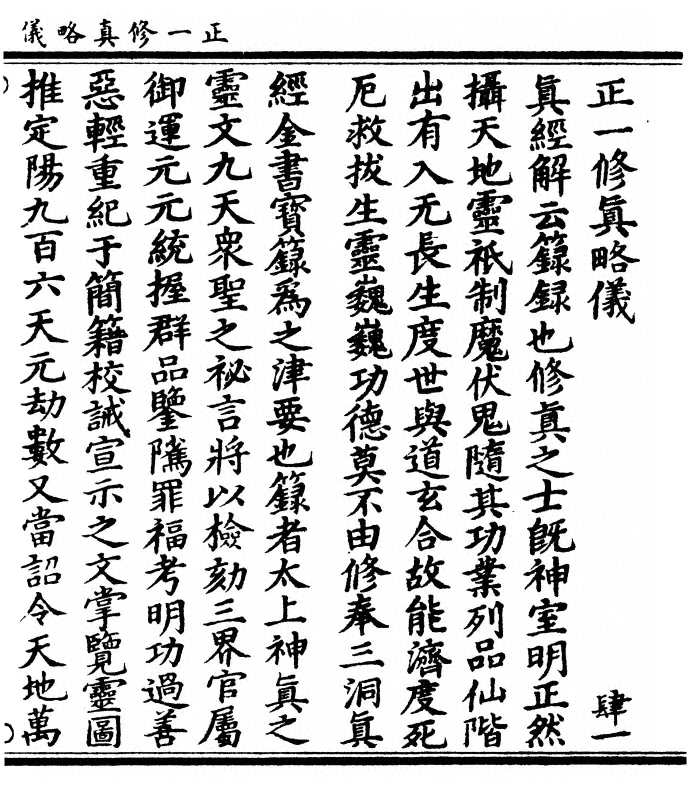 正一修真略儀
正一修眞略儀 肆一
眞經解云籙録也修真之士旣神室明正然
攝天地靈祇制魔伏鬼隨其功業列品仙階
出有入无長生度世與道玄合故能濟度死
厄救拔生靈巍巍功德莫不由修奉三洞眞
經金書寶籙爲之津要也籙者太上神眞之
靈文九天衆聖之祕言將以檢劾三界官屬
御運元元統握群品鑒隲罪福考明功過善
惡輕重紀于簡籍校誡宣示之文掌覽靈圖
推定陽九百六天元劫數又當詔令天地萬